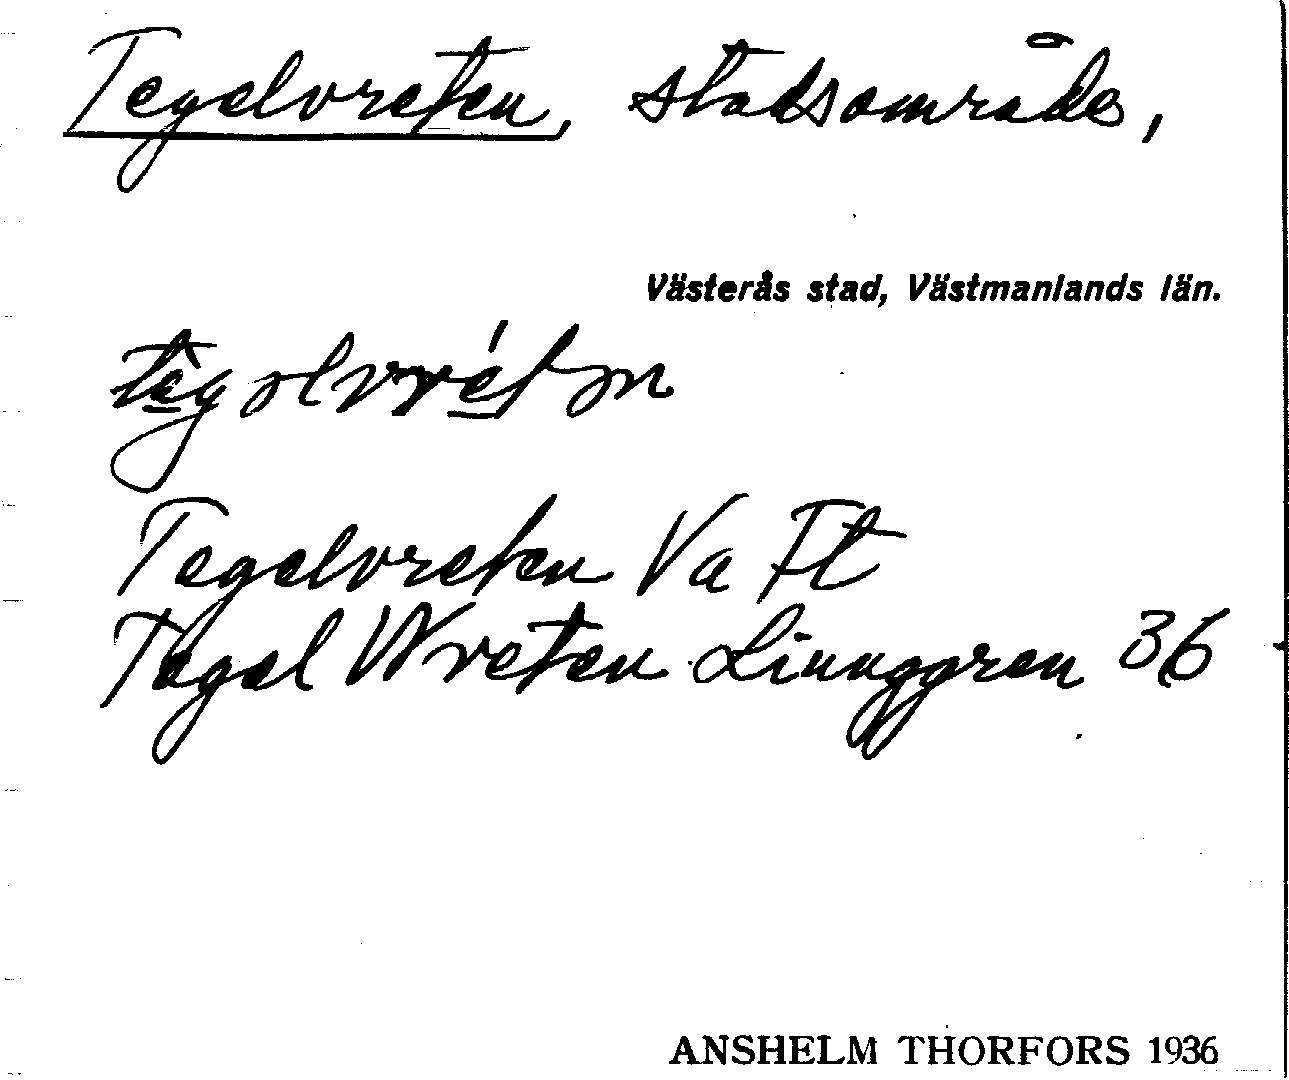 Tegelvreten, stadsområde,
Västerås stad, Västmanlands län.
Tegelvreten Va Ft
Tegel Wreten Liunggren 36
ANSHELM THORFORS 1936